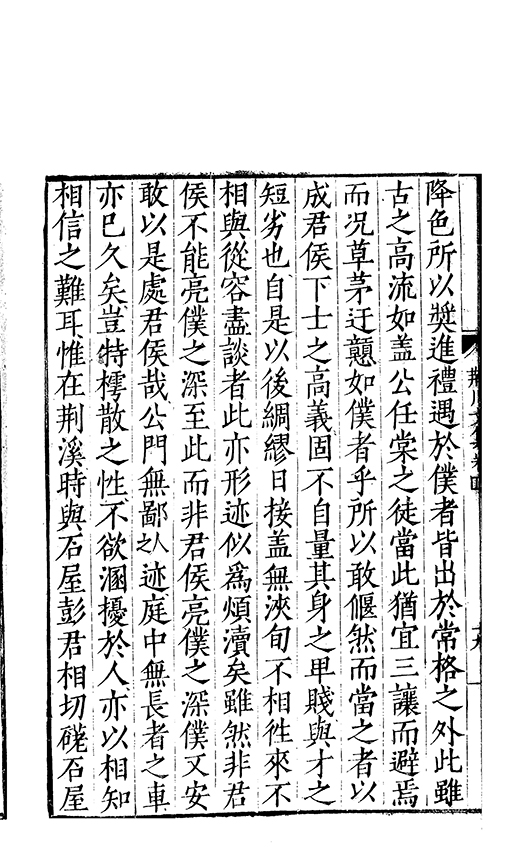 降色所以奬進禮遇於僕者皆出於常格之外此雖
古之高流如盖公任棠之徒當此猶宜三讓而避焉
而况草茅迂戇如僕者乎所以敢偃然而當之者以
成君侯下士之高義固不自量其身之卑賤與才之
短劣也自是以後綢繆日接盖無浹旬不相徃來不
相與從容盡談者此亦形迹似爲煩瀆矣雖然非君
侯不能亮僕之深至此而非君侯亮僕之深僕又安
敢以是處君侯哉公門無鄙人之迹庭中無長者之車
亦已久矣豈特樗散之性不欲溷擾於人亦以相知
相信之難耳惟在荆溪時與石屋彭君相切磋石屋